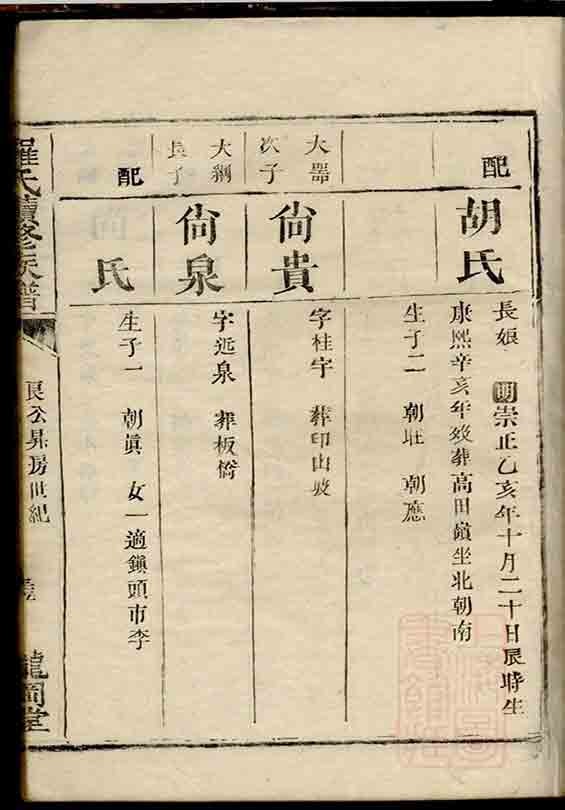 配
胡氏
長娘 明崇正乙亥年十月二十日辰時生
康熙辛亥年歿葬高田嶺坐北朝南
生子二 朝旺 朝應
大器
次子
尙貴
字桂宇 葬印山坡
大綱
長子
尙泉
字近泉 葬板橋
配
氏
生子一 朝眞 女一適鎭頭市李
羅氏續修族譜
良公昇房世紀
龍岡堂